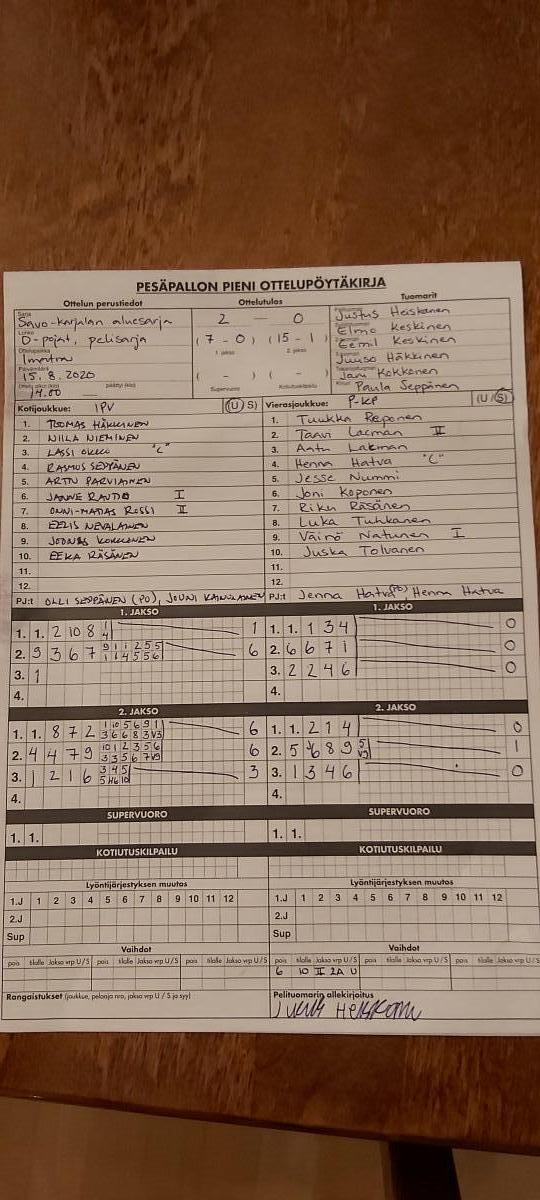 PESÄPALLON PIENI OTTELUPÖYTÄKIRJA
Ottelun perustiedot Ottelutulos Tuomarit
Sarja
Savo-karjalan aluesarja 2 — 0 Justus Heiskanen
Lohko
D-pojat, pelisarja (7 - 0) (15 - 1) Elmo Keskinen
Ottelupaikka 1. jakso 2. jakso Eemil Keskinen
Imatra Juuso Häkkinen
Päivämäärä
15.8.2020 ( - ) ( - ) Jani Kokkonen
Ottelu alkoi (klo) päättyi (klo) Supervuoro Kotiutuskilpailu
14.00 Paula Seppänen
Kotijoukkue: IPV (U/S) Vierasjoukkue: P-KP (U/S)
1. TUOMAS HÄKKINEN 1. Tuukka Reponen
2. NIILA NIEMINEN 2. Taavi Lacman II
3. LASSI OKKO "C" 3. Aatu Lakman
4. RASMUS SEPPÄNEN 4. Henna Hatva "C"
5. ARTTU PARVIAINEN 5. Jesse Nummi
6. JANNE RAUTIO I 6. Joni Koponen
7. ONNI-MATIAS ROSSI II 7. Riku Räsänen
8. EELIS NEVALAINEN 8. Luka Tuhkanen
9. JOONAS KOKKONEN 9. Väinö Natunen I
10. EEKA RÄSÄNEN 10. Juska Tolvanen
11. 11.
12. 12.
PJ:t OLLI SEPPÄNEN (PO), JOUNI KAINULAINEN PJ:t Jenna Hatva (PO), Henna Hatva
1. JAKSO 1. JAKSO
1. 1. 2 10 8 1 4 1 1. 1. 1 3 4 0
2. 9 3 6 7 9 1 1 2 5 5 6 2. 6 6 7 1 0
1 1 4 5 5 6
3. 1 3. 2 2 4 6 0
4. 4.
2. JAKSO 2. JAKSO
1. 1. 8 7 2 1 10 5 6 9 1 6 1. 1. 2 1 4 0
3 6 6 8 3 V3
2. 4 4 7 9 10 1 2 3 5 6 6 2. 5 6 8 9 5 1
3 3 5 6 7 V9 V9
3. 1 2 1 6 3 4 5 3 3. 1 3 4 6 0
4. 4.
SUPERVUORO SUPERVUORO
1. 1. 1. 1.
KOTIUTUSKILPAILU KOTIUTUSKILPAILU
Lyöntijärjestyksen muutos Lyöntijärjestyksen muutos
1.J 1 2 3 4 5 6 7 8 9 10 11 12 1.J 1 2 3 4 5 6 7 8 9 10 11 12
2.J 2.J
Sup Sup
Vaihdot Vaihdot
pois tilalle Jakso vrp U/S pois tilalle Jakso vrp U/S pois tilalle Jakso vrp U/S pois tilalle Jakso vrp U/S
6 10 II 2A U
Rangaistukset (joukkue, pelaaja nro, jakso vrp U / S ja syy) Pelituomarin allekirjoitus